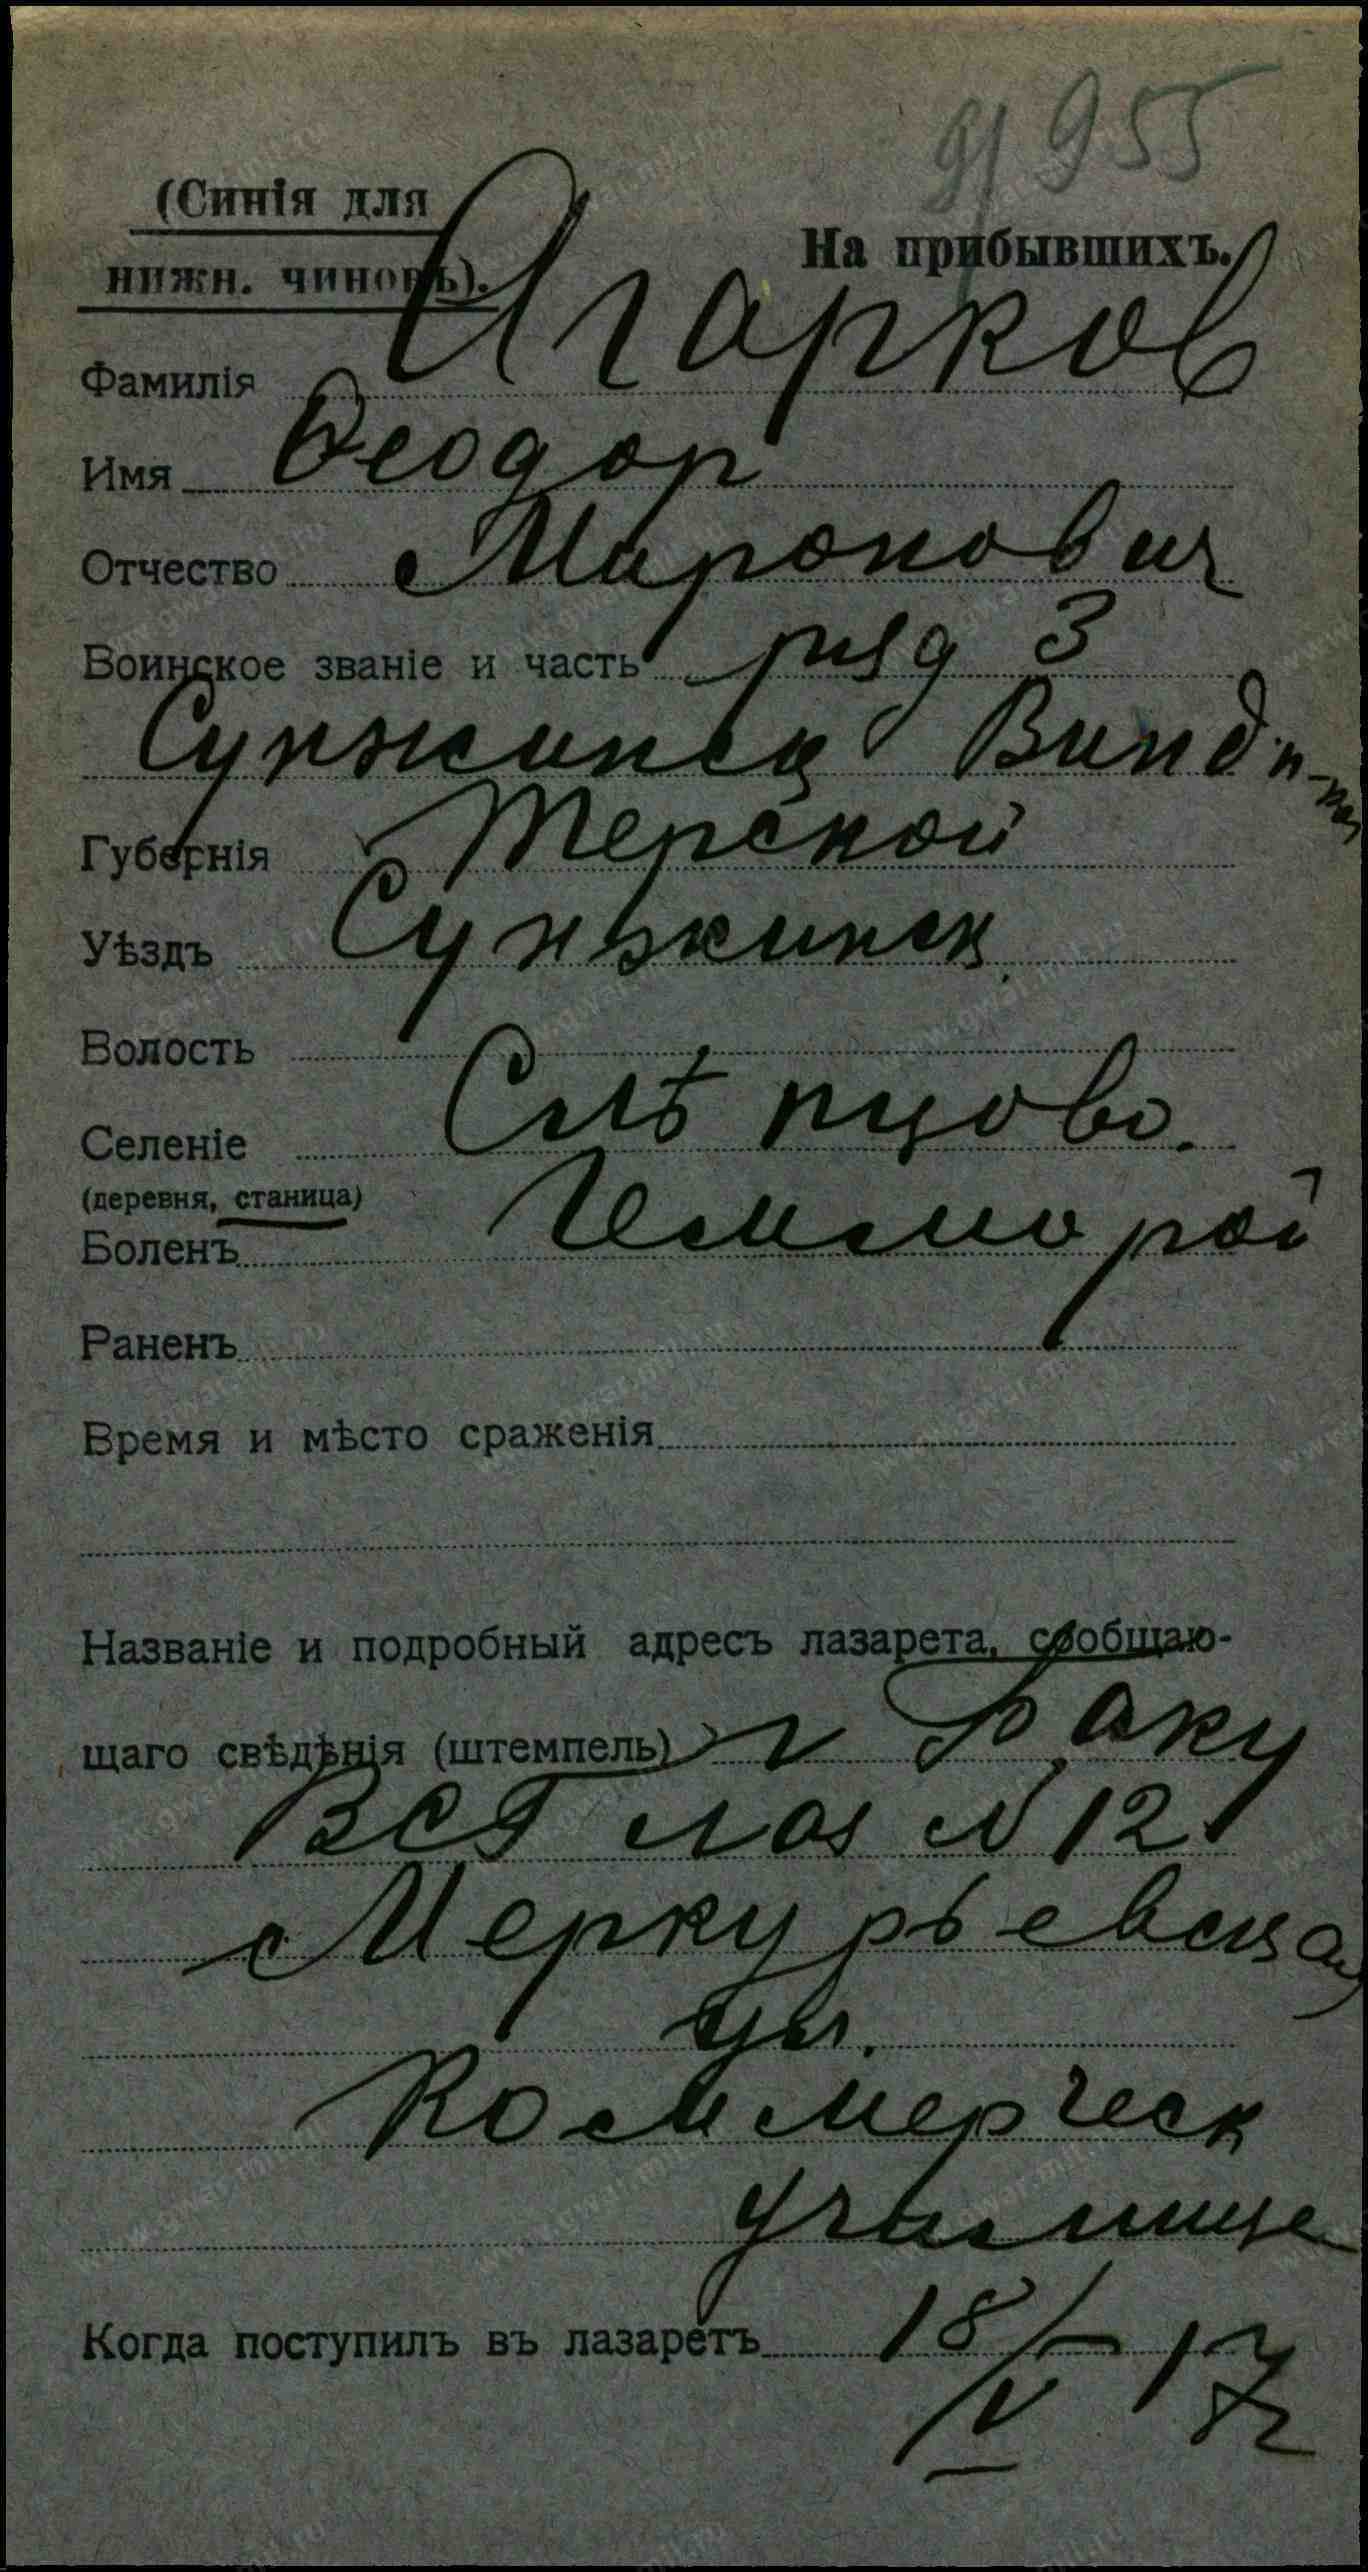 91955
(Синія для
нижн. чиновъ).
На прибывшихъ.
Фамилія Агарков
Имя Ѳеодор
Отчество Миронович
Воинское званіе и часть ряд 3
Сунжинск
Губернія Терской
Уѣздъ Сунжинск
Волость
Селеніе Слѣпцово.
(деревня, станица)
Боленъ Гемморой
Раненъ
Время и мѣсто сраженія
Названіе и подробный адресъ лазарета, сообщаю-
щаго свѣдѣнія (штемпель) г Баку
ВСГ лаз N 12
Меркурьевская
ул.
Коммерческ
училище
Когда поступилъ въ лазаретъ 18/V 17 г